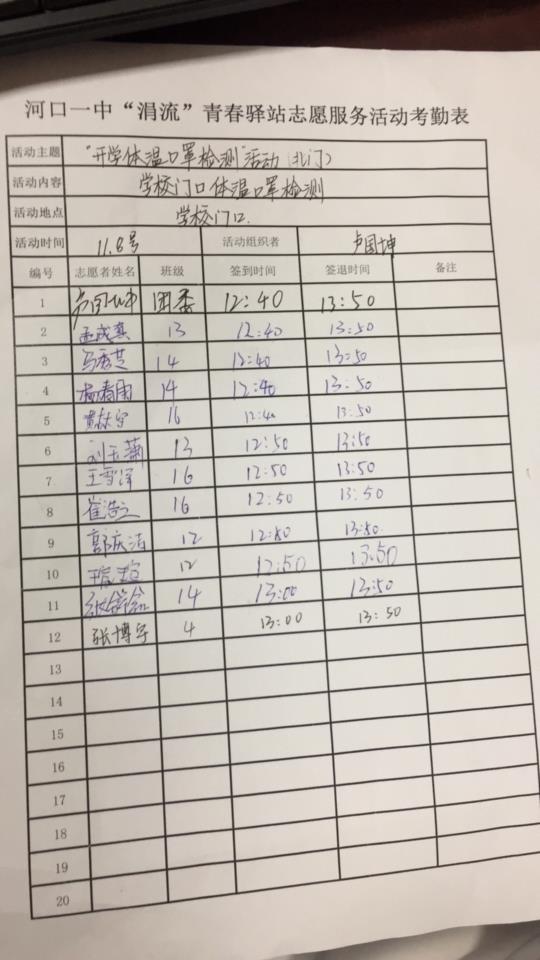 河口一中“涓流”青春驿站志愿服务活动考勤表
活动主题 “开学体温口罩检测”活动（北门）
活动内容 学校门口体温口罩检测
活动地点 学校门口.
活动时间 11.8号 活动组织者 卢国坤
编号 志愿者姓名 班级 签到时间 签退时间 备注
1 卢国坤 团委 12:40 13:50
2 13 12:40 13:50
3 马秀芝 14 12:40 13:50
4 杨春雨 14 12:40 13:50
5 16 12:40 13:50
6 刘玉菊 13 12:50 13:50
7 王雪泽 16 12:50 13:50
8 崔浩之 16 12:50 13:50
9 郭庆洁 12 12:50 13:50
10 12 12:50 13:50
11 14 13:00 13:50
12 张博宇 4 13:00 13:50
13
14
15
16
17
18
19
20